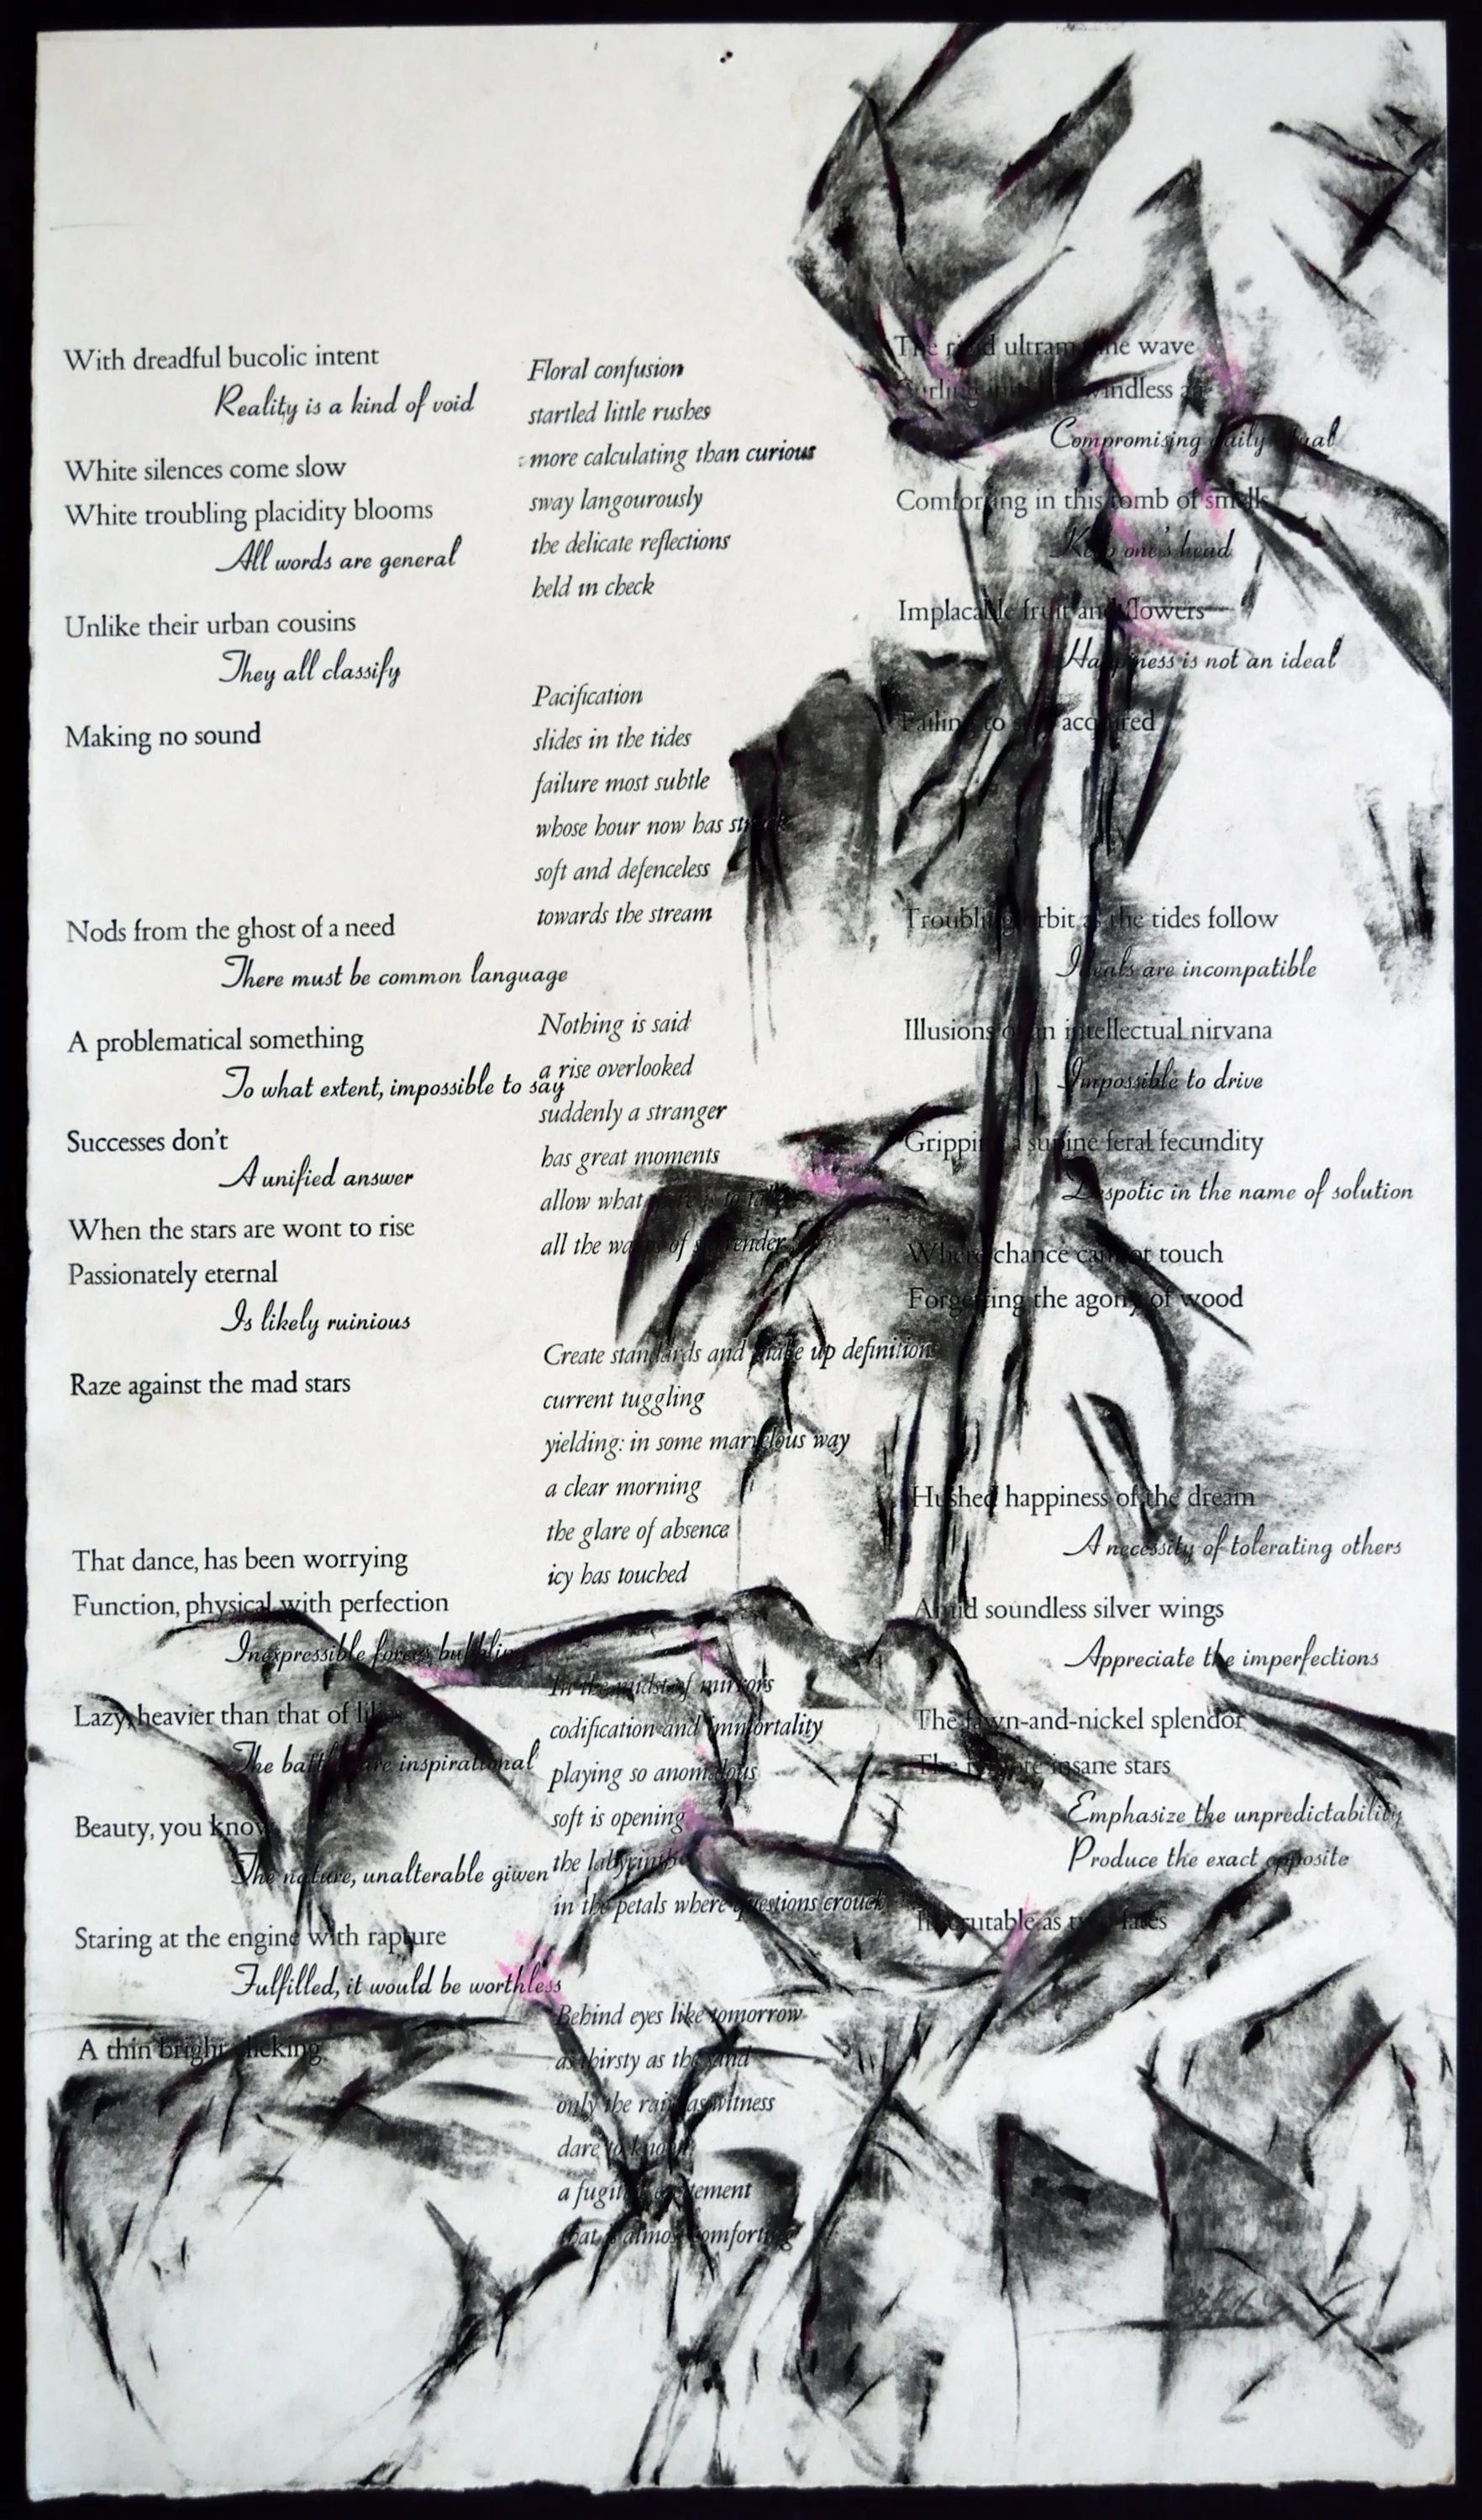 With dreadful bucolic intent
Reality is a kind of void
White silences come slow
White troubling placidity blooms
All words are general
Unlike their urban cousins
They all classify
Making no sound
Nods from the ghost of a need
There must be common language
A problematical something
To what extent, impossible to say
Successes don't
A unified answer
When the stars are wont to rise
Passionately eternal
Is likely ruinious
Raze against the mad stars
That dance, has been worrying
Function, physical with perfection
Inexpressible forces bubbling
Lazy, heavier than that of
The battles are inspirational
Beauty, you know
The nature, unalterable giwen
Staring at the engine with rapture
Fulfilled, it would be worthless
A thin bright clicking
Floral confusion
startled little rushes
more calculating than curious
sway langourously
the delicate reflections
held in check
Pacification
slides in the tides
failure most subtle
whose hour now has struck
soft and defenceless
towards the stream
Nothing is said
a rise overlooked
suddenly a stranger
has great moments
allow what
all the of surrender
Create standards and make up definitions
current tuggling
yielding: in some marvelous way
a clear morning
the glare of absence
icy has touched
In the midst of mirrors
codification and immortality
playing so anomalous
soft is opening
the labyrinth
in the petals where questions crouch
Behind eyes like tomorrow
as thirsty as the sand
only the rain as witness
dare to know
a fugitive excitement
that is almost comforting
The rigid ultramarine wave
Curling into windless air
Compromising daily ritual
Comforting in this tomb of smells
Keep one's head
Implacable fruit and flowers
Happiness is not an ideal
Failing to acquired
Troubling orbit as the tides follow
Ideals are incompatible
Illusions of an intellectual nirvana
Impossible to drive
Gripping a supine feral fecundity
Despotic in the name of solution
Where chance cannot touch
Forgetting the agony of wood
Hushed happiness of the dream
A necessity of tolerating others
Amid soundless silver wings
Appreciate the imperfections
The fawn-and-nickel splendor
The remote insane stars
Emphasize the unpredictability
Produce the exact opposite
Inscrutable as twin fates